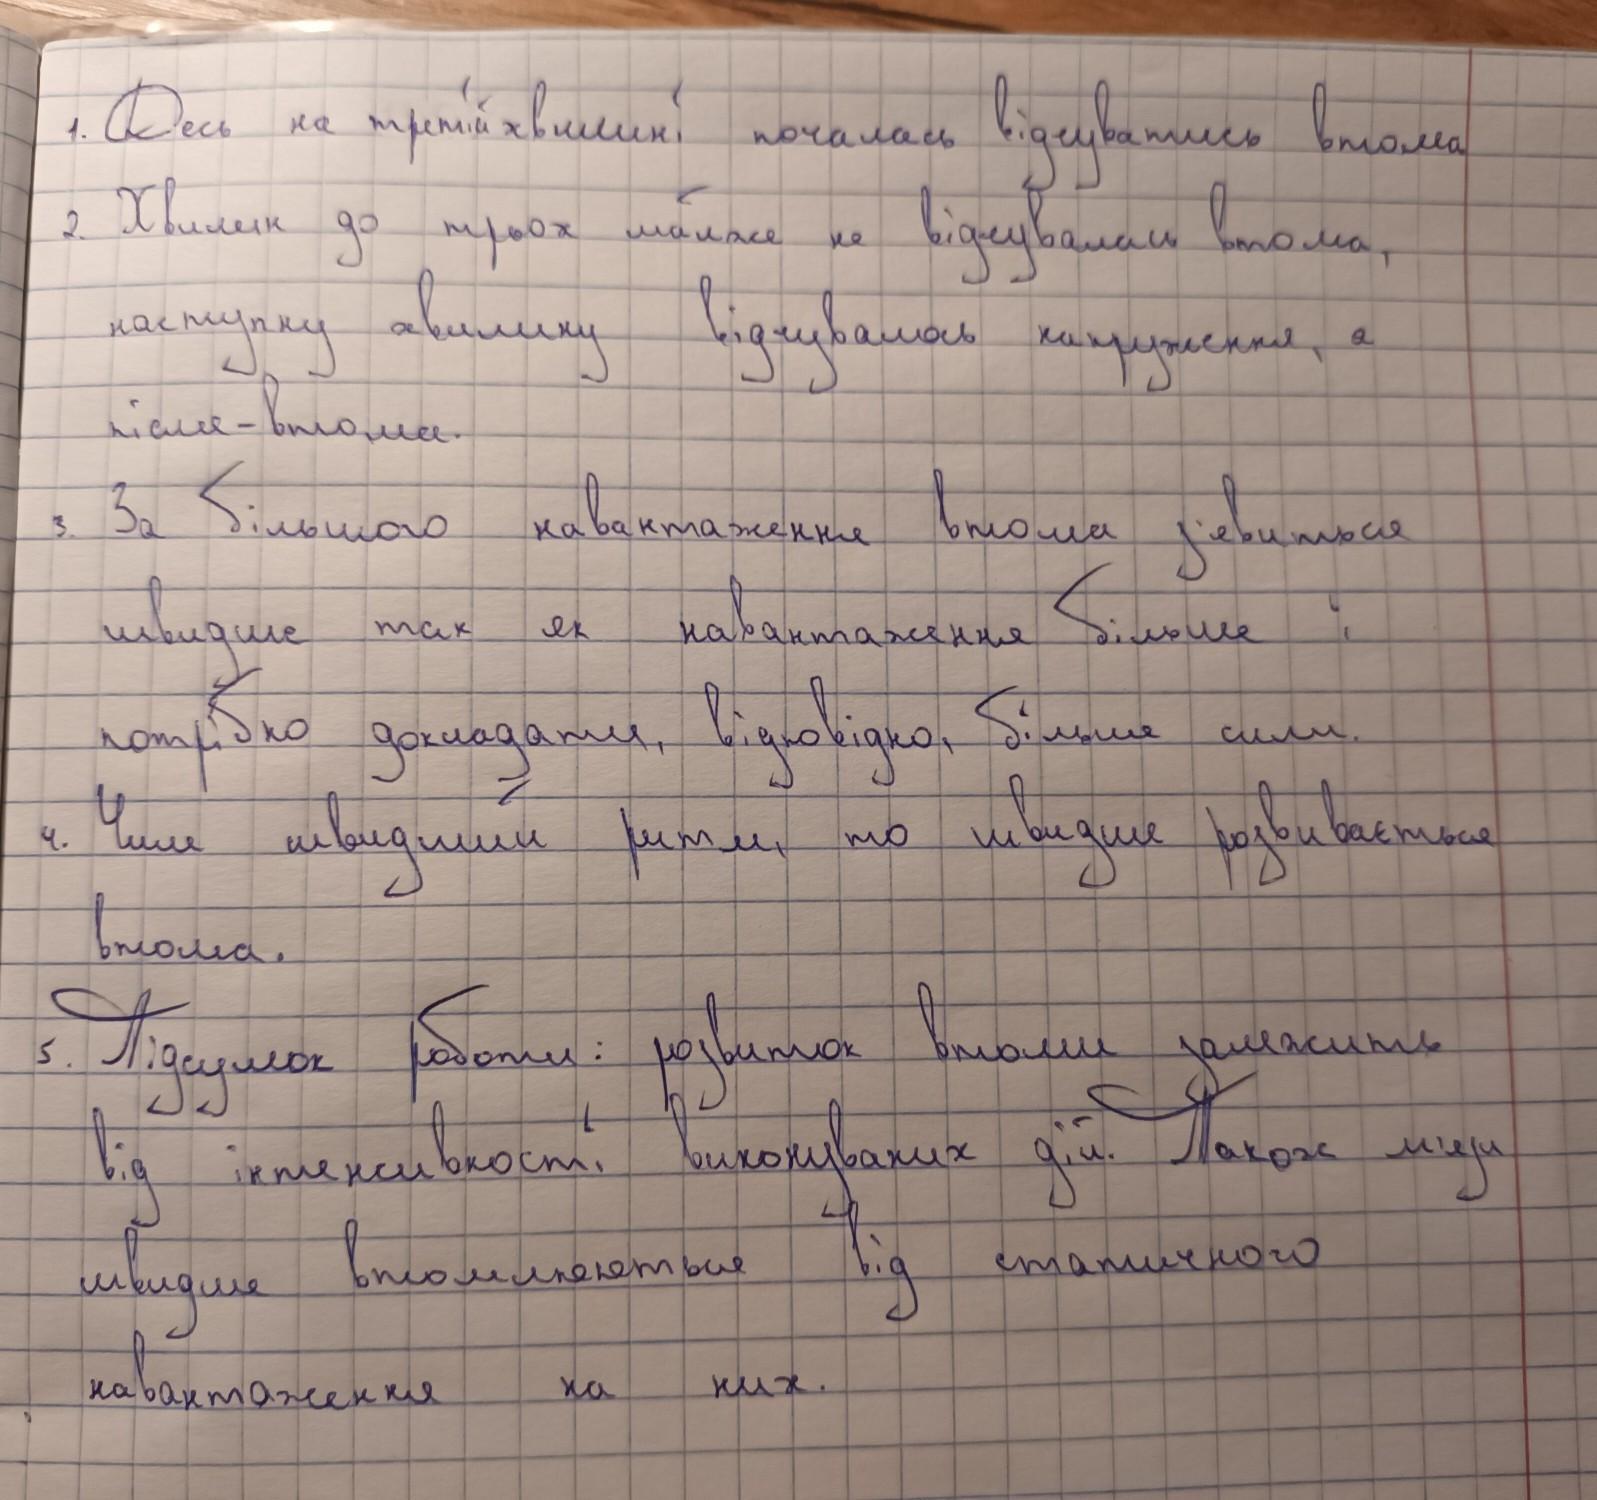 1. Десь на третій хвилині почалась відчуватись втома
2. Хвилин до трьох майже не відчувалась втома,
наступну хвилину відчувалось напруження, а
після - втома.
3. За більшого навантаження втома з'явиться
швидше так як навантаження більше і
потрібно докладати, відповідно, більше сили.
4. Чим швидший ритм, то швидше розвивається
втома.
5. Підсумок роботи: розвиток втоми залежить
від інтенсивності виконуваних дій. Також м'язи
швидше втомлюються від статичного
навантаження на них.